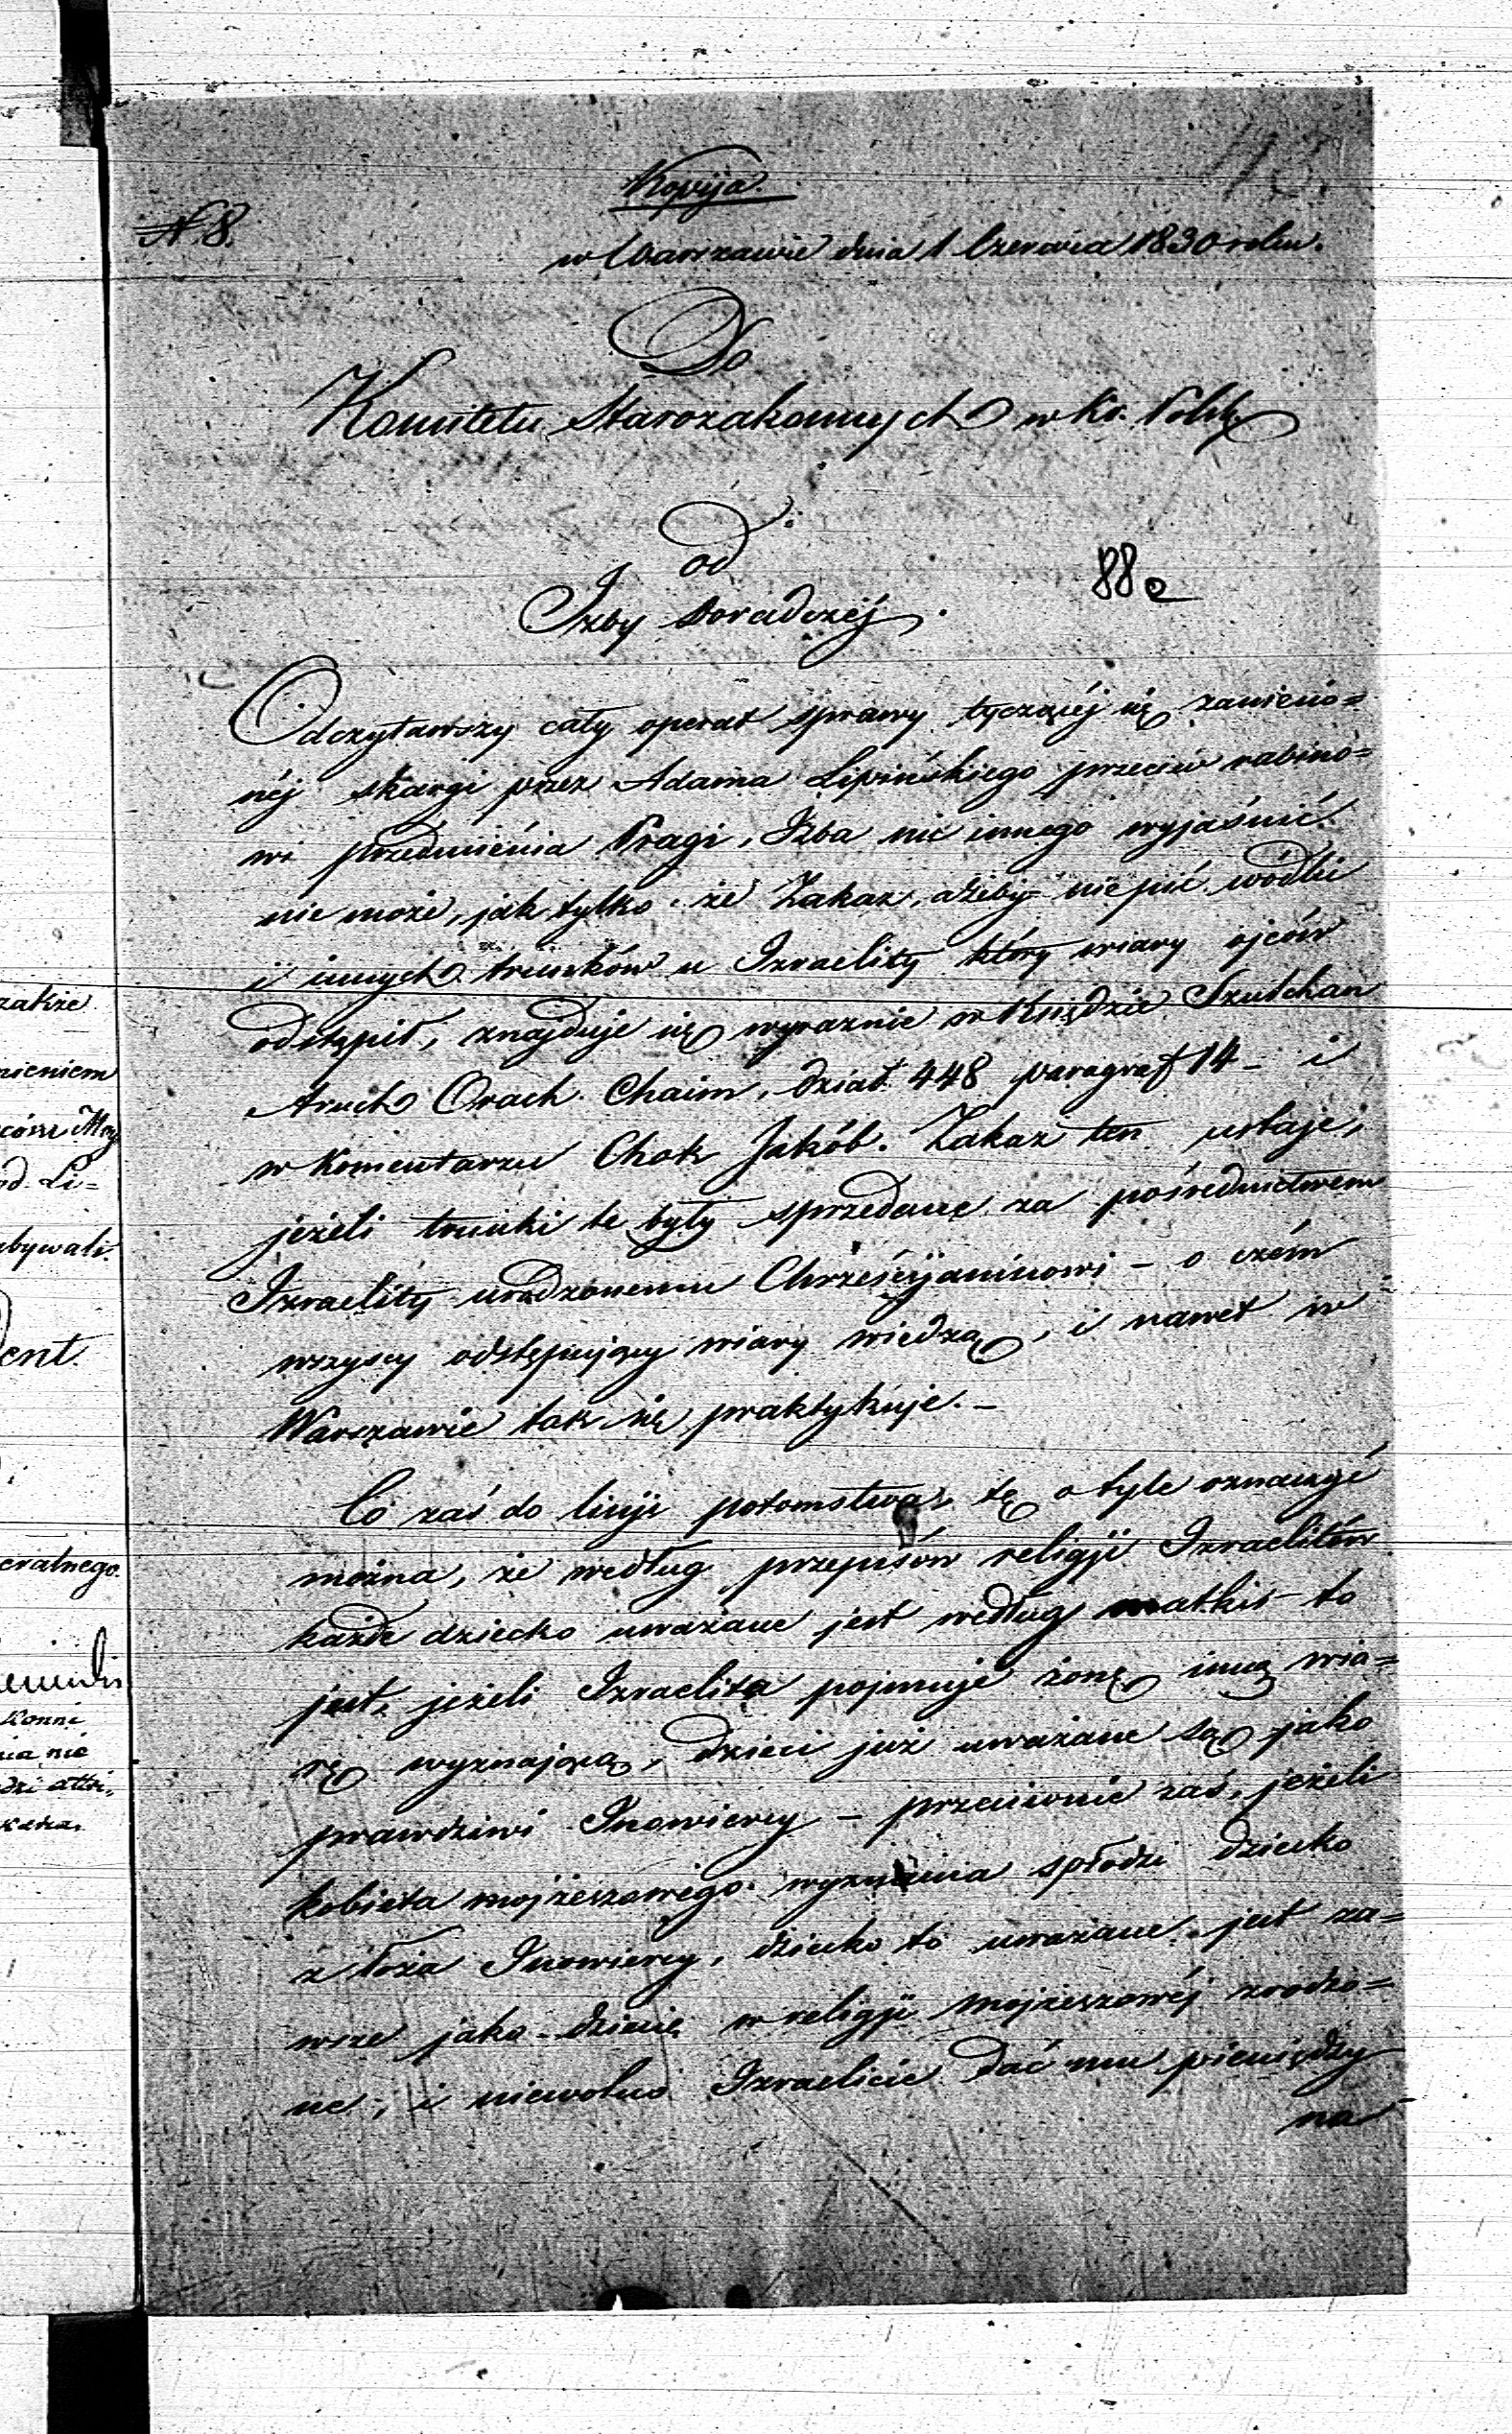 Kopija.
N. 8.
w Warszawie dnia 1 Czerwca 1830 roku.
Do
Komitetu Starozakonnych w Kr. Polsk.
od
Izby Doradczéj.
88e
Odczytawszy cały operat sprawy tyczącéj się zanieśio=
néj skargi przez Adama Lipińskiego przeciw rabino=
wi przedmieścia Pragi, Izba nic innego wyjaśnić
nie może, jak tylko że Zakaz, ażeby nie pić wódki
i innych trunków u Izraelity który wiary ojców
odstąpił, znajduje się wyraznie w Księdze Szulchan
Aruch Orach Chaim, dział 448 paragraf 14 - i
w Komentarzu Chok Jakób. Zakaz ten ustaje,
jeżeli trunki te były sprzedane za pośrednictwem
Izraelity urodzonemu Chrześcijaninowi - o czém
wszyscy odstępujący wiary wiedzą, i nawet w
Warszawie tak się praktykuje. -
Co zaś do linji potomstwa, tę o tyle oznaczyć
można, że według przepisów religji Izraelitów
każde dziecko uważane jest według matki - to
jest, jeżeli Izraelita pojmuje żonę inną wia=
rę wyznającą, dzieci już uważane są jako
prawdziwi Inowiercy - przeciwnie zaś, jeżeli
kobieta mojżeszowego wyznania spłodzi dziecko
z łoża Inowiercy, dziecko to uważane jest za=
wsze jako dziecię w religji mojżeszowéj zrodzo=
ne, i niewolno Izraelicie dać mu pieniędzy
na
zakże
nieniem
Li=
bywali.
dent.
eralnego.
nia nie